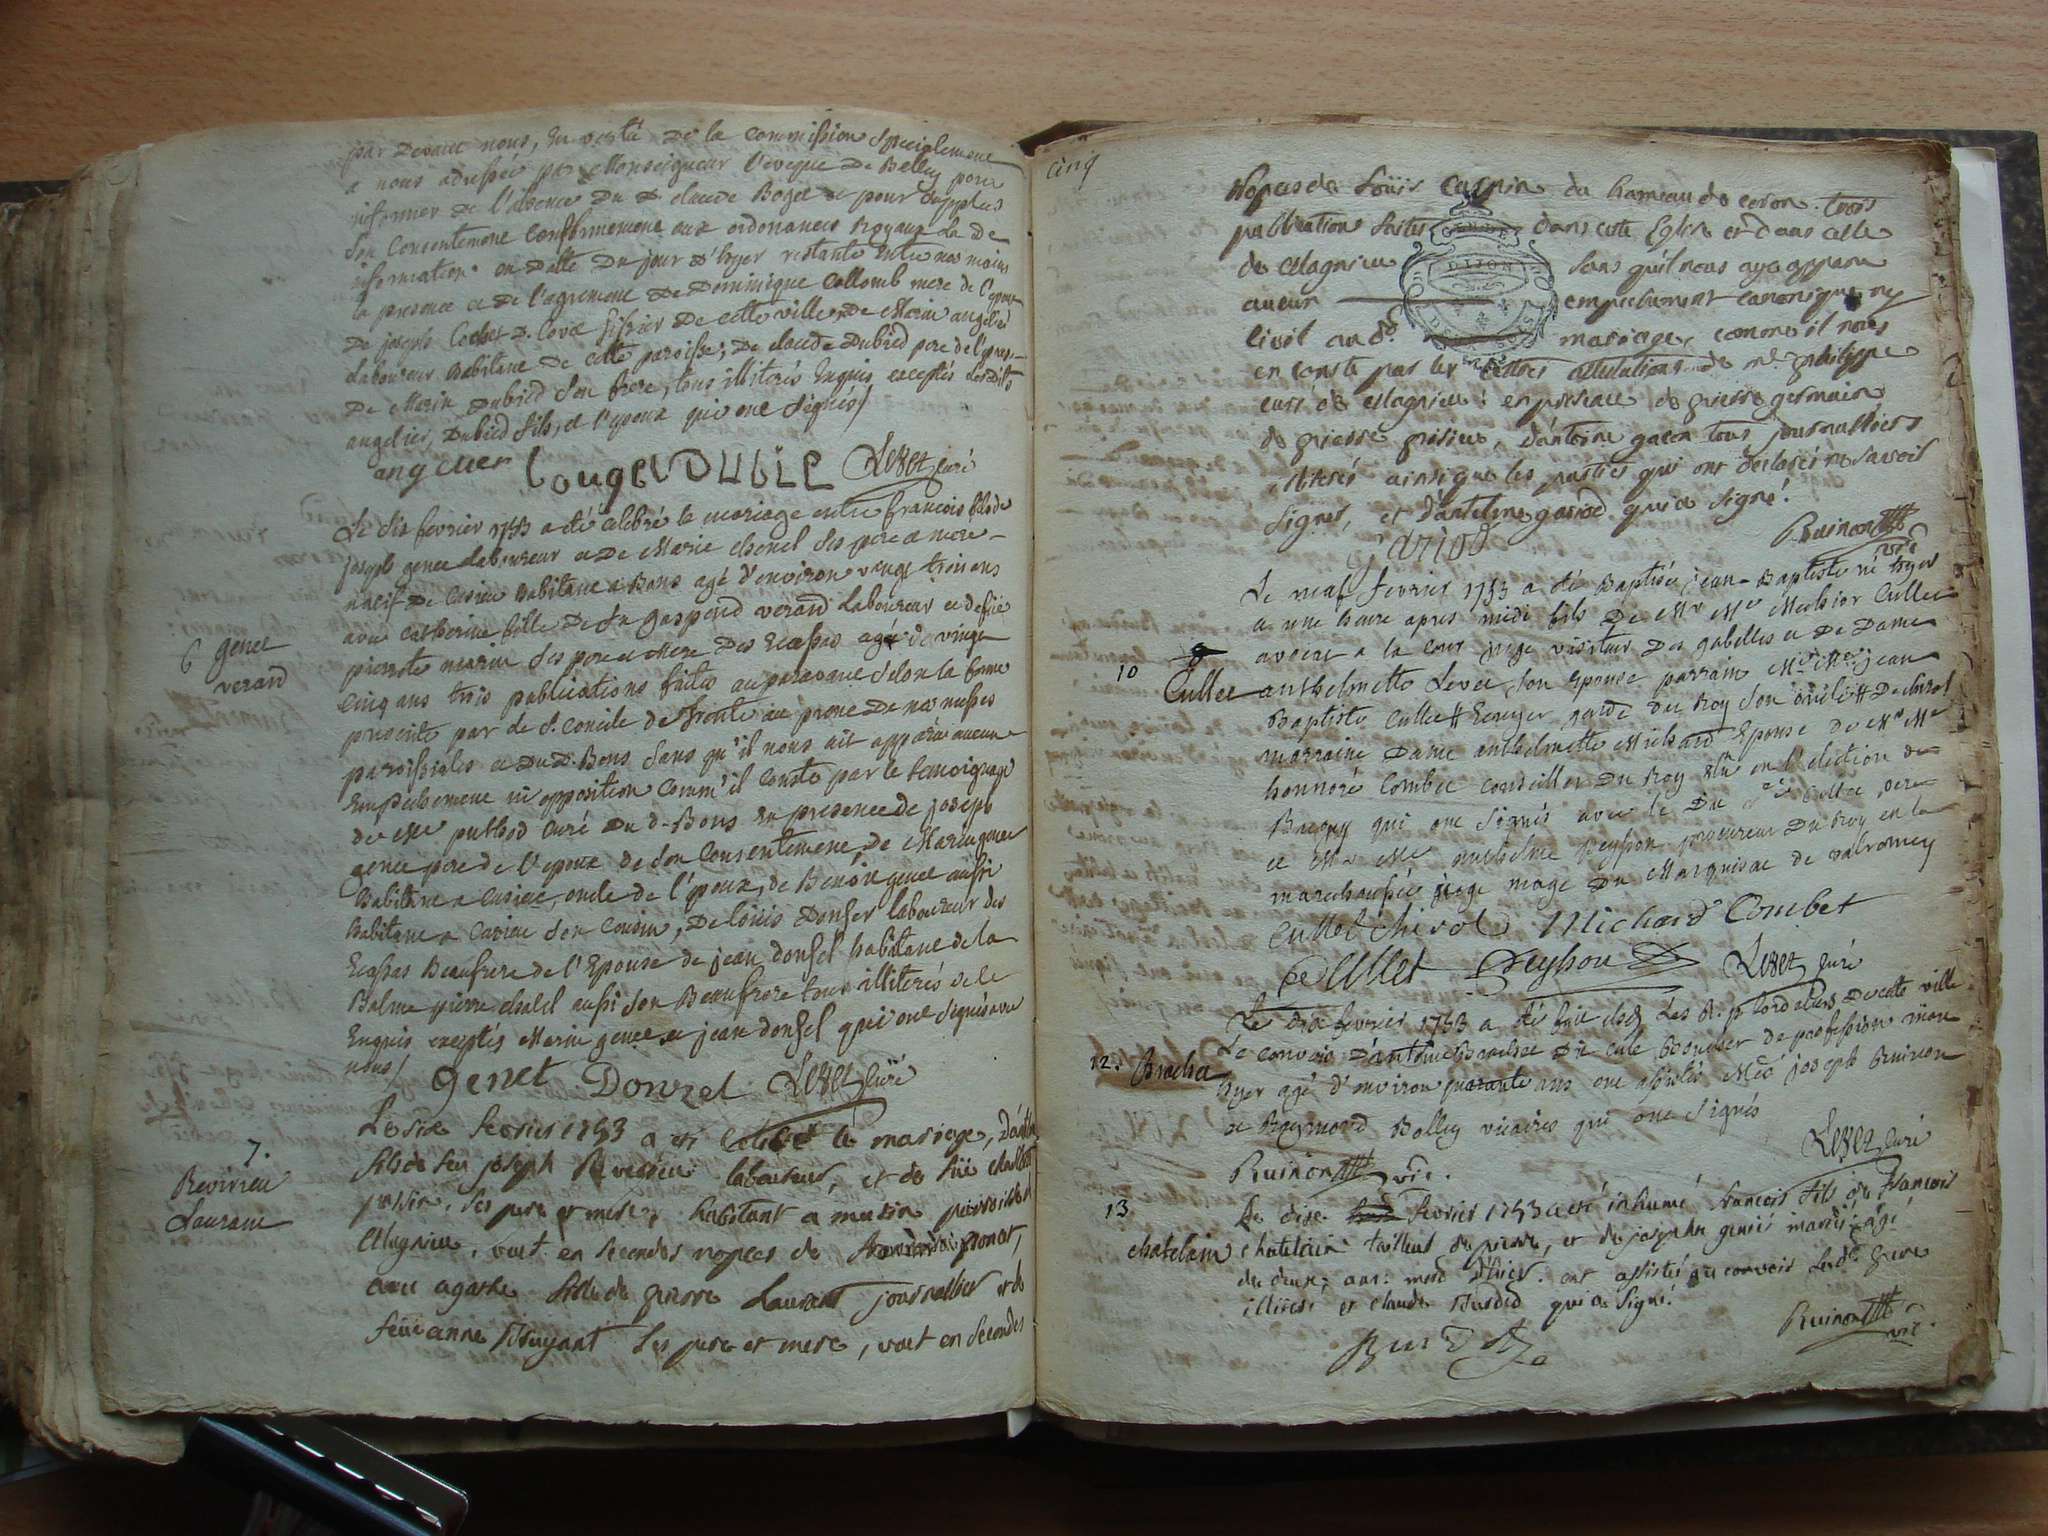 par devant nous, En vertu De la commission specialement
a nous adressée par Monseigneur l'eveque De Belley pour
informer De l'absence Du d. claude Boget et pour supplées
son Consentement conformement aux ordonances Royaux La De
information en datte Du jour d'hyer restante Entre nos mains
la presence et De l'agrement De Dominique Collomb mere de l'epoux
De joseph De cette ville, De Marin angelier
Laboureur habitant De cette paroisse; De claude Dubied pere de l'epouse
De Marin Dubied son frere, tous illiterés Enquis exceptés Lesdits
angelier, Dubied fils, et l'epoux qui ont signés/
angelier Louget DUBIE Levet curé
Le six fevrier 1753 a été celebré le mariage entre francois fils de
joseph genet laboureur et De Marie chenel ses pere et mere
natif De Cusieu habitant a Bons agé d'environ vingt trois ans
avec catherine fille De fu gaspard verand Laboureur et defüe
pierrote marin ses pere et Mere Des Ecassas agée de vingt
6 genet
verand
cinq ans trois publications faites auparavant selon la forme
prescrite par le St. concile de Trente au prone De nos messes
paroissiales et Du d. Bons sans qu'il nous ait apparu aucun
Empechement ni opposition comm'il Conste par le temoignage
de Me puthod curé Du d. Bons En presence de joseph
genet pere de l'epoux de son Consentement, De Marin genet
habitant a Cusieu, oncle de l'epoux, de Benoit genet aussi
habitant a Cusieu son Cousin, De louis Donser laboureur des
Ecassas Beaufrere de l'Epouse de jean donsel habitant de la
Balme pierre chalel aussi son Beaufrere tous illiterés de le
Enquis exceptés Marin genet et jean donsel qui ont signés avec
nous/
genet Donzel Levet curé
7.
Revirieu
Laurent
Le six fevrier 1753 a eté celebré le mariage, d'
fils de feu joseph Revirieu laboureur, et de füe
ses pere et mere, habitant a musin paroisse de
Magnieu, veuf en secondes nopces de
avec agathe fille de pierre Laurent journallier et de
feüe anne Bruyant ses pere et mere, veuve en secondes
cinq
Nopces de Loüis du hameau de ceron. trois
publications faites dans cette Eglise et dans celle
de Magnieu sans qu'il nous aye apparu
aucun empechement canonique ny
civil au d. mariage, comme il nous
en conste par les lettres de mr. philippe
curé de Magnieu: en presence de pierre germain
de pierre d'antoine tous journalliers
illiterés ainsi que les parties qui ont declarés ne savoir
signer, et d'antelme gariod qui a signé.
gariod
Ruinon vic
Le neuf fevrier 1753 a été Baptisée jean-Baptiste né hyer
a une heure apres midi fils De Mr Me Melchior Cullet
avocat a la cour juge visiteur Des gabelles et De Dame
10
Cullet
anthelmette Levet, son Epouse parrain Mr Me jean
Baptiste Cullet Ecuyer garde du Roy son oncle
marraine Dame anthelmette Michard Epouse de Mr Me
honnoré Combet conseiller Du Roy Elu en l'election de
Bugey qui ont signés avec le Cullet pere
et Mr Me anthelme Peysson procureur Du Roy en la
marechaussée juge mage Du Marquisat de Valromey
Michard Combet
Cullet Peysson Levet curé
12. Brachet
Le dix fevrier 1753 a été fait chez Les R. p. Cordeliers De cette ville
Le convoi D'antoine Brachet Boucher de profession mort
hyer agé d'environ quarante ans ont assistés Mes joseph Ruinon
et Raymond Bolley vicaires qui ont signés
Levet curé
Ruinon vic.
13
chatelain
Le dix fevrier 1753 a eté inhumé francois fils de francois
chatelain tailleur de pierre, et de josephte mariés; agé
de deux ans. mort d'hier. ont assistés au convoi le d. pere
illiteré et claude Burdod qui a signé.
Ruinon
vic.